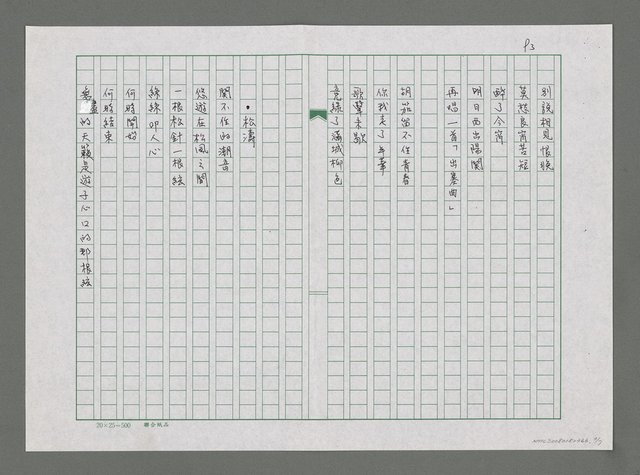 P3
別說相見恨晚
莫愁良宵苦短
醉了今宵
明日西出陽關
再唱一首「出塞曲」
胡笳留不住青春
你我去了年華
歌聲未歇
竟綠了滿城柳色
•松濤
關不住的潮音
悠遊在松風之間
一根松針一根絃
絲絲叩人心
何時開始
何時結束
無盡的天籟是遊子心口的那根絃
20×25=500 聯合紙品